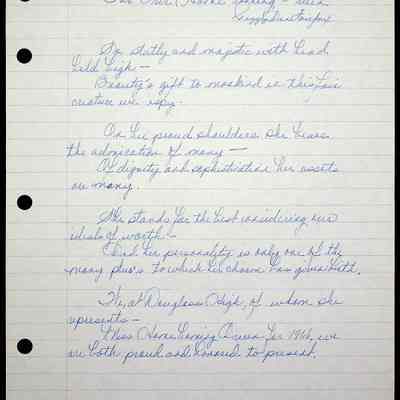 So stately and majestic with head
held high —
Beauty's gift to mankind in this fair
creature we espy.
On her proud shoulders she bears
the admiration of many —
Of dignity and sophistication her assets
are many.
She stands for the best considering our
ideals of worth —
And her personality is only one of the
many plus's to which her charm has given birth.
We, at Douglass High, of whom she
represents —
Miss Home Coming Queen for 1966, we
are both proud and honored to present.